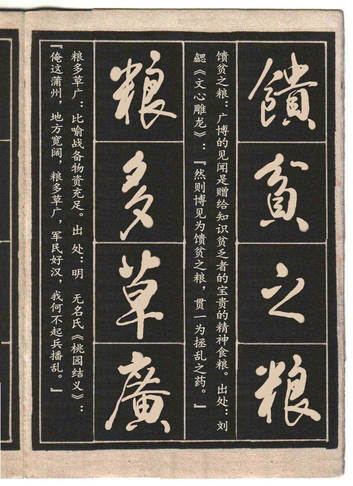 饋貧之粮
馈贫之粮：广博的见闻是赠给知识贫乏者的宝贵的精神食粮。出处：刘
勰《文心雕龙》：『然则博见为馈贫之粮，贯一为拯乱之药。』
粮多草廣
粮多草广：比喻战备物资充足。出处：明 无名氏《桃园结义》：
『俺这蒲州，地方宽阔，粮多草广，军民好汉，我何不起兵播乱。』